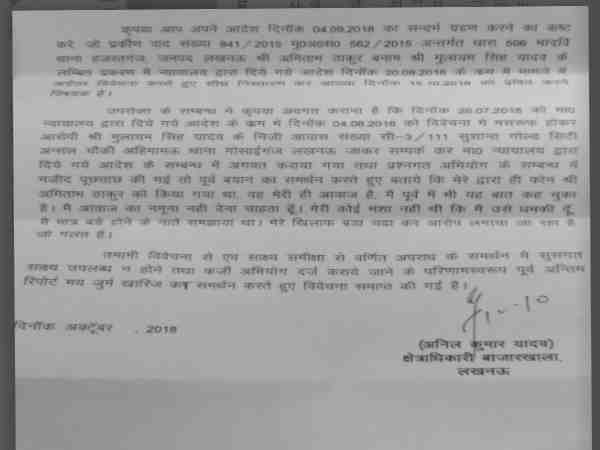 कृपया आप अपने आदेश दिनाँक 04.09.2018 का सन्दर्भ ग्रहण करने का कष्ट
करें, जो प्रकीर्ण वाद संख्या 941/2015 मु0अ0सं0 562/2015 अन्तर्गत धारा 506 भादवि
थाना हजरतगंज, जनपद लखनऊ श्री अमिताभ ठाकुर बनाम श्री मुलायम सिंह यादव के
लम्बित प्रकरण में न्यायालय द्वारा दिये गये आदेश दिनाँक 20.08.2018 के क्रम में मामले में
अग्रेतर विवेचना कराते हुए शीघ्र निस्तारण कर आख्या दिनाँक को प्रेषित करने
विषयक है।
उपरोक्त के सम्बन्ध में कृपया अवगत कराना है कि दिनाँक 20.07.2018 को मा0
न्यायालय द्वारा दिये गये आदेश के क्रम में दिनाँक 04.08.2018 को विवेचना में मसरूफ होकर
आरोपी श्री मुलायम सिंह यादव के निजी आवास संख्या सी-3/111 सुशान्त गोल्ड सिटी
अन्सल चौकी अहिमामऊ थाना गोसाईगंज लखनऊ जाकर सम्पर्क कर मा0 न्यायालय द्वारा
दिये गये आदेश के सम्बन्ध में अवगत कराया गया तथा प्रश्नगत अभियोग के सम्बन्ध में
मजीद पूछताछ की गई तो पूर्व बयान का समर्थन करते हुए बताये कि मेरे द्वारा ही फोन श्री
अमिताभ ठाकुर को किया गया था, वह मेरी ही आवाज है, मैं पूर्व में भी यह बात कह चुका
हूँ। मैं आवाज का नमूना नही देना चाहता हूँ। मेरी कोई मंशा नही थी कि मैं उसे धमकी दूँ,
मैं मात्र बड़े होने के नाते समझाया था। मेरे खिलाफ बढ़ा चढ़ा कर आरोप लगाया जा रहा है,
जो गलत है।
तमामी विवेचना से एवं साक्ष्य समीक्षा से वर्णित अपराध के समर्थन में सुसंगत
साक्ष्य उपलब्ध न होने तथा फर्जी अभियोग दर्ज कराये जाने के परिणामस्वरूप पूर्व अन्तिम
रिपोर्ट मय जुर्म खारिज का समर्थन करते हुए विवेचना समाप्त की गई है।
दिनाँक अक्टूबर , 2018
(अनिल कुमार यादव)
क्षेत्राधिकारी बाजारखाला,
लखनऊ